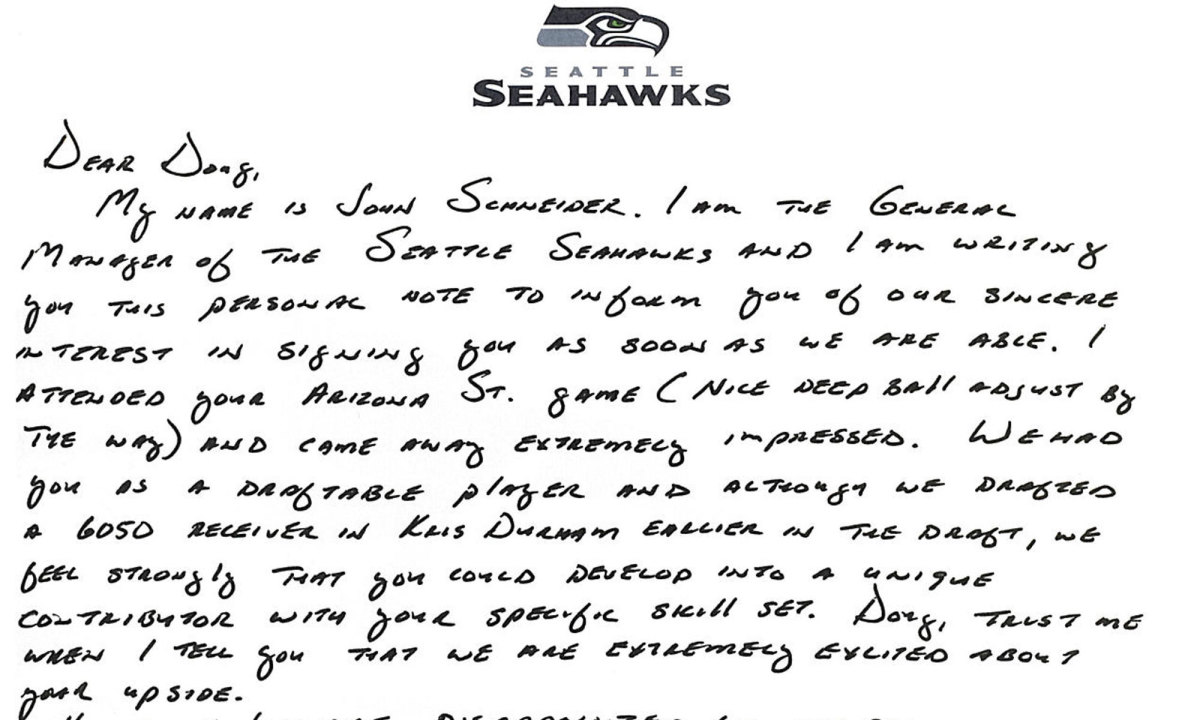 SEATTLE
SEAHAWKS
DEAR Doug,
My NAME IS JOHN SCHNEIDER. I AM THE GENERAL
MANAGER of THE SEATTLE SEAHAWKS AND I AM WRITING
you THIS PERSONAL NOTE TO INfORM you of OUR SINCERE
INTEREST IN SIGNING you AS SOON AS WE ARE ABLE. I
ATTENDED your ARIZONA ST. gAME (NICE DEEP BAll ADJUST By
THE WAy) AND CAME AWAy EXTREMELy IMPRESSED. WE HAD
you AS A DRAfTABLE PlAyER AND ALTHOUgH WE DRAFTED
A 6050 RECEIVER IN KRIS DURHAM EARLIER IN THE DRAfT, WE
fEEL STRONgly THAT you COULD DEVELOP INTO A UNIQUE
CONTRIBUTOR WITH your SPECIfIC SKIll SET. Doug, TRUST ME
WHEN I TELL you THAT WE ARE EXTREMELy EXCITED ABOUT
your UPSIDE.